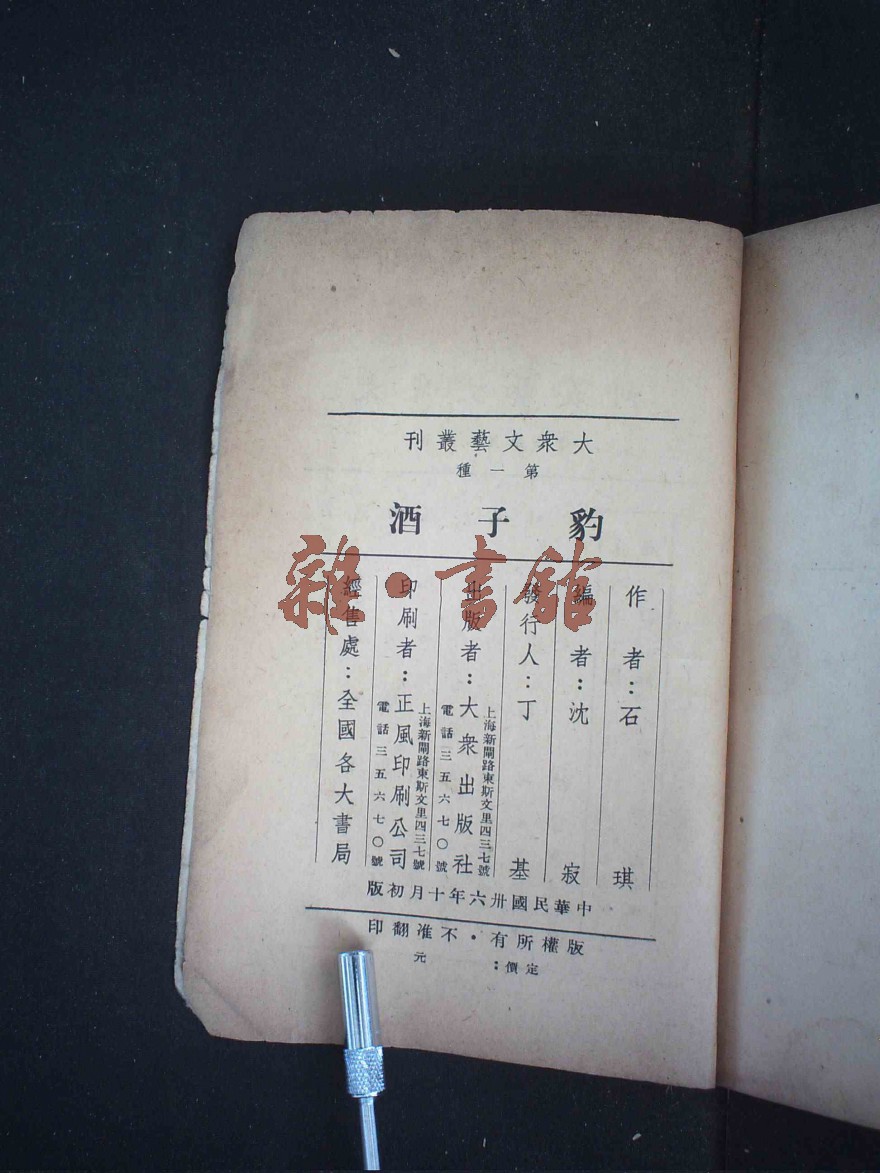 大衆文藝叢刊
第一種
豹子酒
作者：石琪
編者：沈寂
發行人：丁基
出版者：大衆出版社
上海新閘路東斯文里四三七號
電話三五六七〇號
印刷者：正風印刷公司
上海新閘路東斯文里四三七號
電話三五六七〇號
經售處：全國各大書局
中華民國卅六年十月初版
版權所有·不准翻印
定價：　元
雜·書館